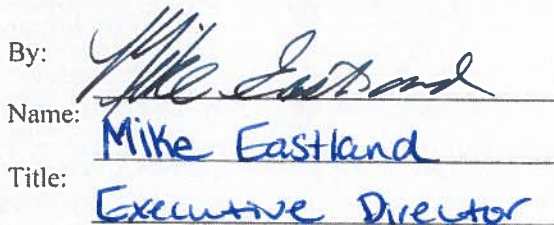 By: Mike Eastland
Name: Mike Eastland
Title: Executive Director